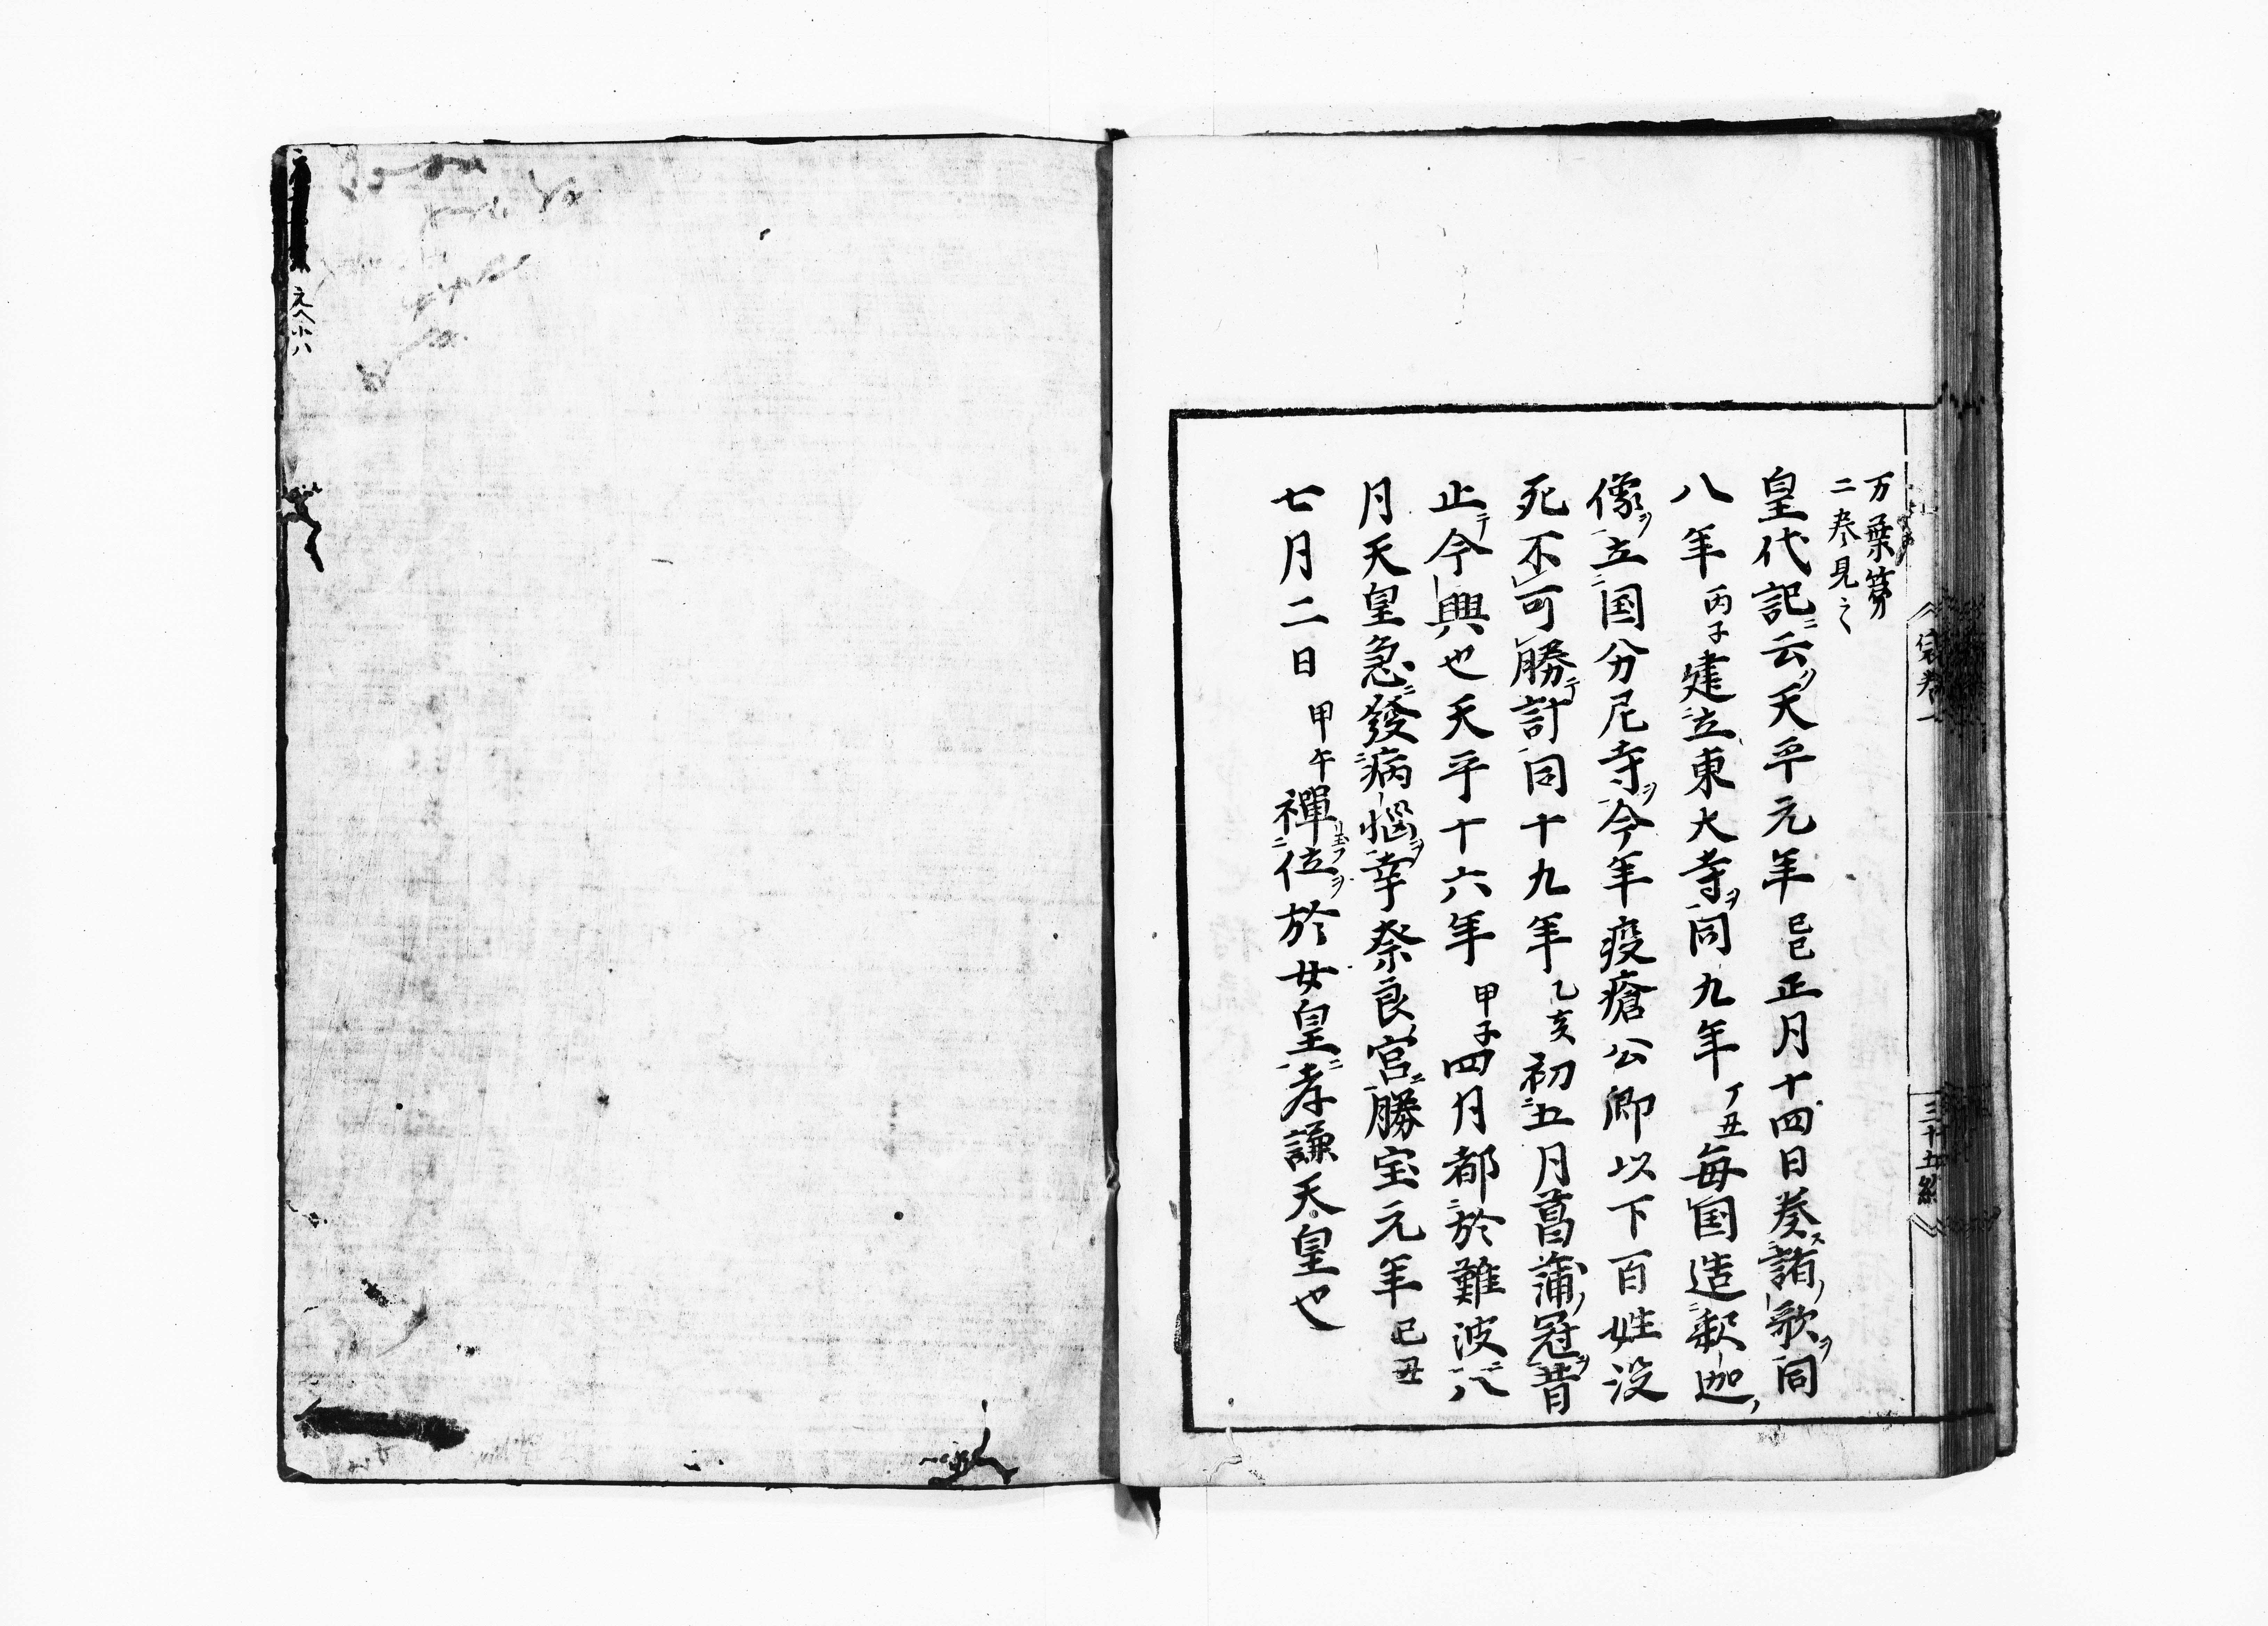 万葉第
二巻見之
皇代記ニ云ク天平元年己巳正月十四日奏ス諸ノ歌ヲ同
八年丙子建立東大寺ヲ同九年丁丑毎国造釈迦ノ
像ヲ立国分尼寺ヲ今年疫瘡公卿以下百姓没
死不可勝テ計同十九年乙亥初五月菖蒲ノ冠ヲ昔
止テ今興也天平十六年甲子四月都於難波ニ八
月天皇急ニ發病悩ヲ幸奈良宮ニ勝宝元年己丑
七月二日甲午禪位ヲ於女皇ニ孝謙天皇也
袋巻一
三十五終